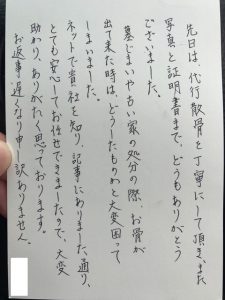 先日は、代行散骨を丁寧にして頂き、また
写真と証明書まで、どうもありがとう
ございました。
墓じまいや古い家の処分の際、お骨が
出て来た時は、どうしたものかと大変困って
しまいました。
ネットで貴社を知り、記事にありました通り、
とても安心してお任せできましたので、大変
助かり、ありがたく思っております。
お返事遅くなり申し訳ありません。